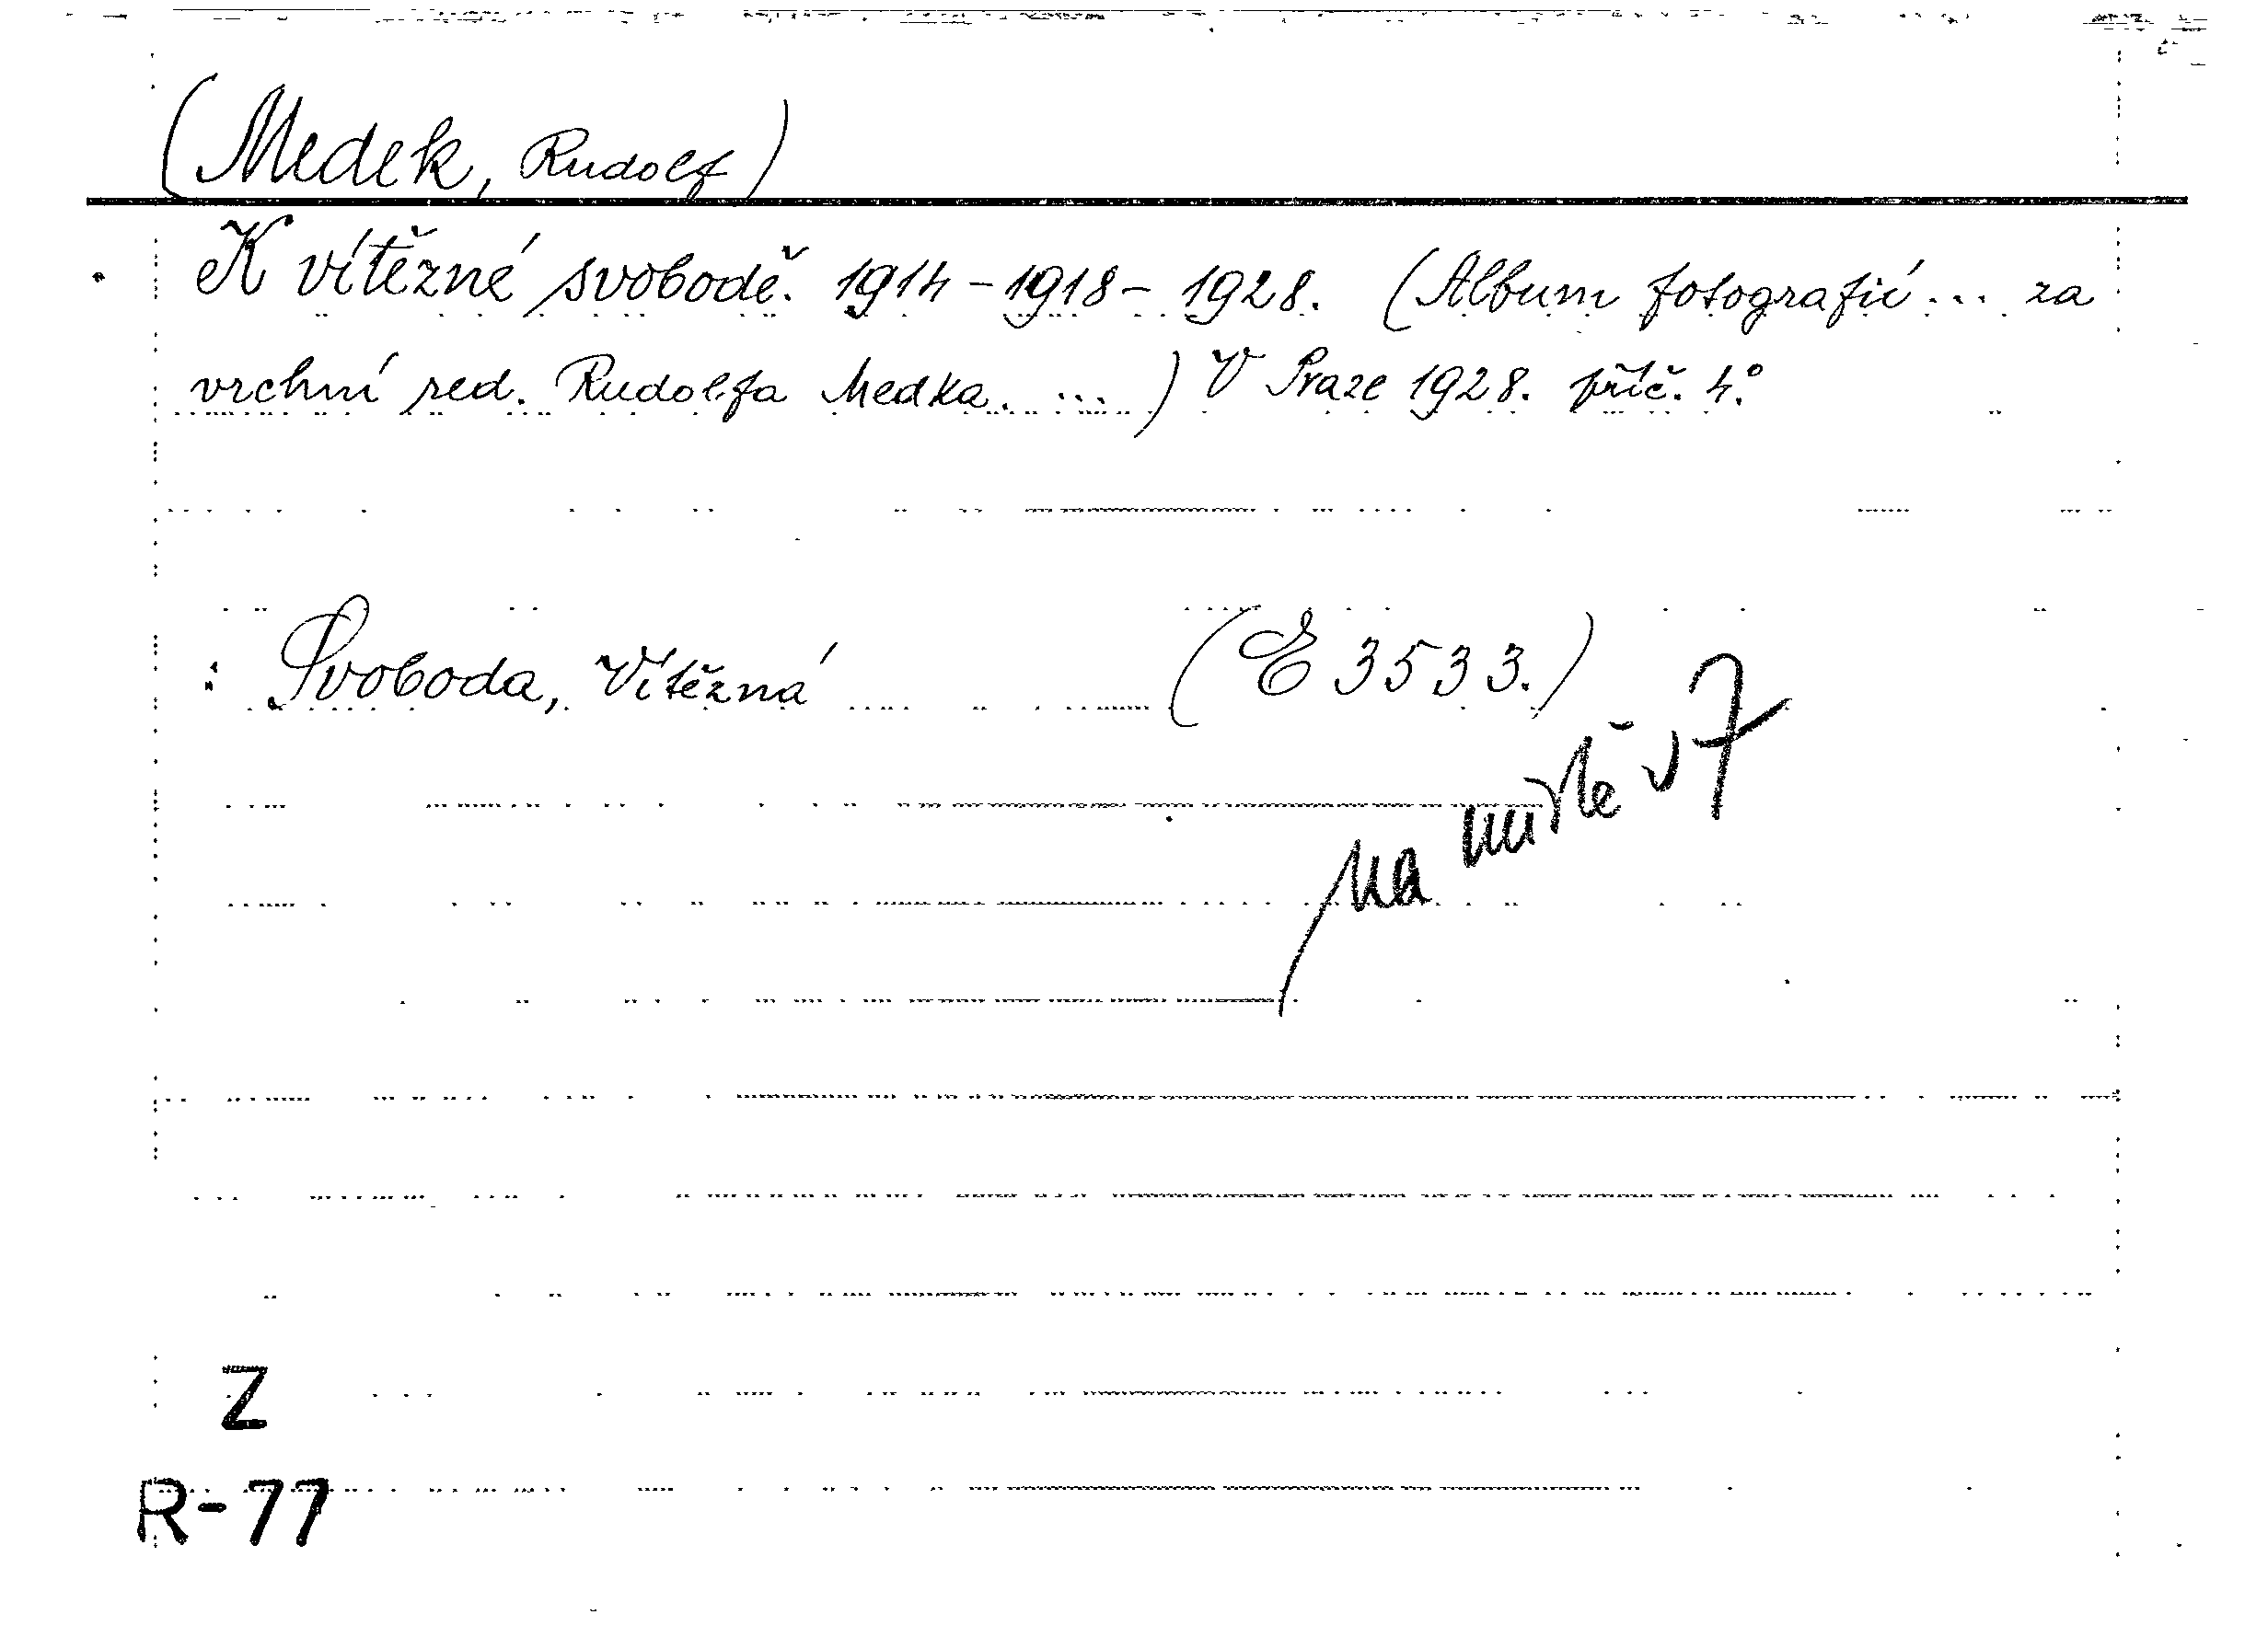 (Medek, Rudolf)
K vítězné svobodě. 1914-1918-1928. (Album fotografií... za
vrchní red. Rudolfa Medka. ...) V Praze 1928. příč. 4°.
: Svoboda, Vítězná (E 3533.)
na místě v 7
Z
R-77